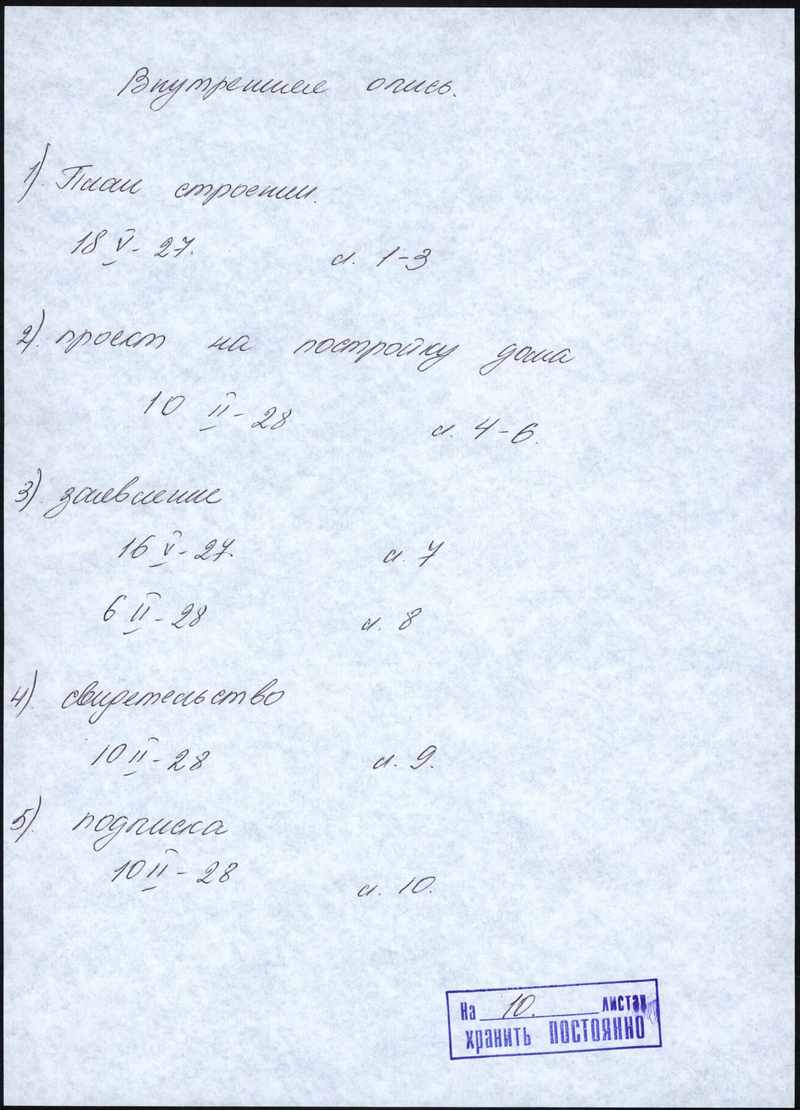 Внутренняя опись.
1). План строении.
18 V - 27.
л. 1-3
2). проект на постройку дома
10 II - 28
л. 4-6.
3) заявление
16 V - 27.
л. 7
6 II - 28
л. 8
4) свидетельство
10 II - 28
л. 9.
5). подписка
10 II - 28
л. 10.
На 10. листах
хранить ПОСТОЯННО